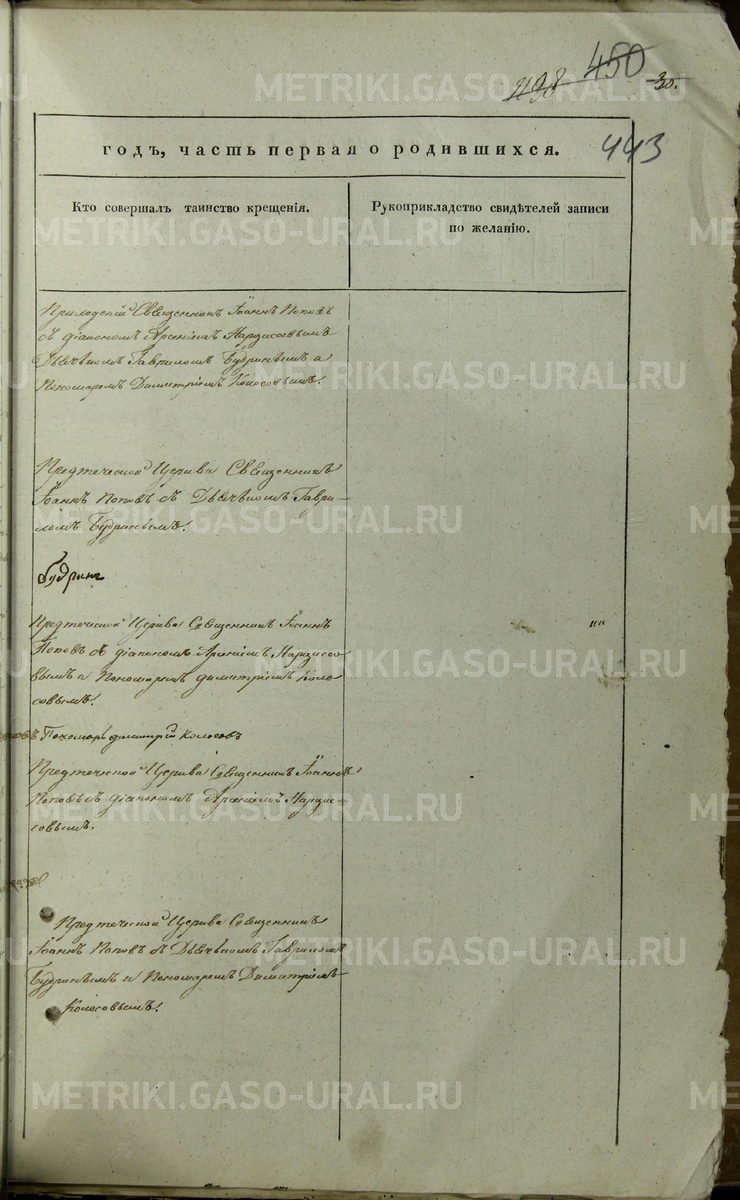 450
1198
30.
годъ, часть первая о родившихся.
443
Кто совершалъ таинство крещенія.
Рукоприкладство свидѣтелей записи
по желанію.
Приходскій Священникъ Іоаннъ Поповъ
съ діакономъ Арсеніемъ Нарциссовымъ
Дьячкомъ Гавріиломъ Будринымъ и
Пономаремъ Димитріемъ Колосовымъ.
Предтеческой Церкви Священникъ
Іоаннъ Поповъ съ Дьячкомъ Гаврі-
ломъ Будринымъ.
Будринъ
Предтеческой Церкви Священникъ Іоаннъ
Поповъ съ діакономъ Арсеніемъ Нарциссо
вымъ и Пономаремъ димитріемъ Коло
совымъ.
Пономарь димитрій Колосовъ
Предтеческой Церкви Священникъ Іоаннъ
Поповъ съ діакономъ Нарцис-
совымъ.
Предтеческой Церкви Священникъ
Іоаннъ Поповъ съ Дьячкомъ Гавріиломъ
Будринымъ и Пономаремъ Димитріемъ
Колосовымъ.
METRIKI.GASO-URAL.RU